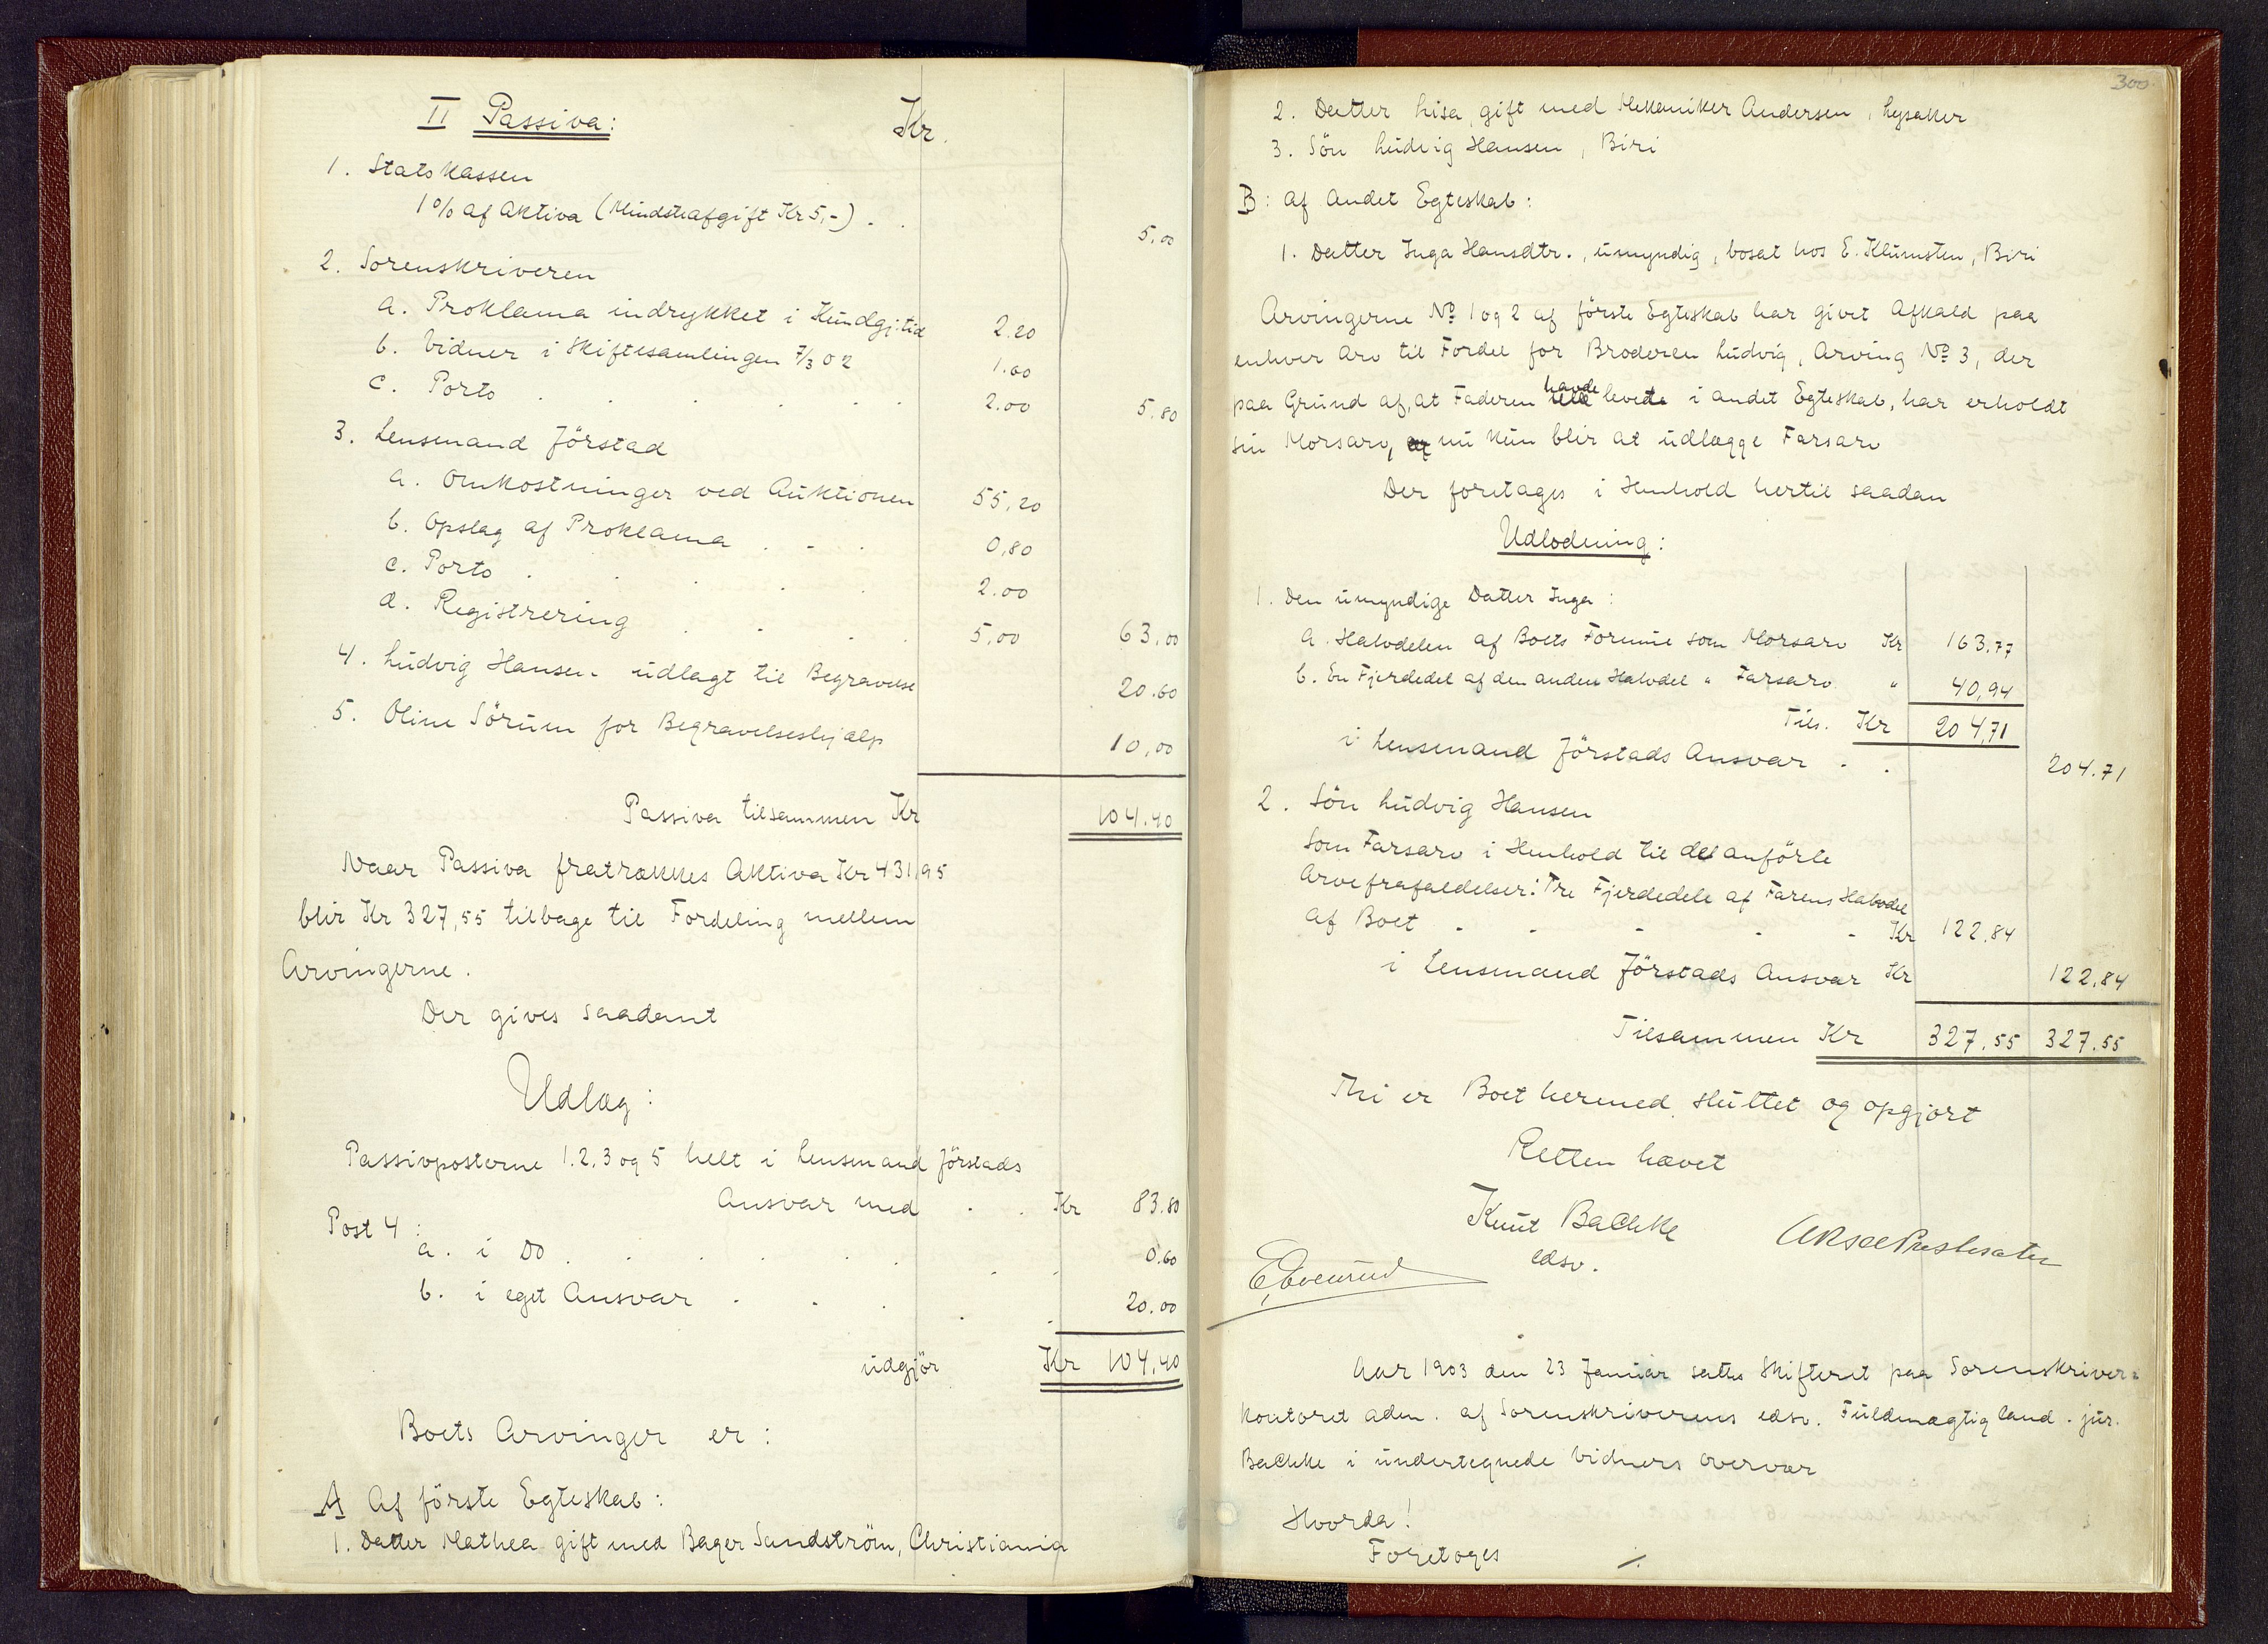 II Passiva: Kr.
1. Statskassen
1% af Aktiva (Mindsteafgift Kr 5,-) . . 5,00
2. Sorenskriveren
a. Proklama indrykket i Kundgj.tid 2.20
b. Vidner i Skiftesamlingen 7/3 02 1.60
c. Porto . . . . . 2.00 5.80
3. Lensmand Förstad
a. Omkostninger ved Auktionen 55,20
b. Opslag af Proklama . . . 0,80
c. Porto . . . . . 2.00
d. Registrering . . . . 5,00 63,00
4. Ludvig Hansen - udlagt til Begravelse 20.60
5. Oline Sörum for Begravelseshjælp 10,00
Passiva tilsammen Kr 104.40
Naar Passiva fratrækkes Aktiva Kr 431,95
blir Kr 327,55 tilbage til Fordeling mellem
Arvingerne.
Der gives saadant
Udlæg:
Passivposterne 1.2.3 og 5 helt i Lensmand Förstads
Ansvar med . . Kr 83.80
Post 4:
a. i Do . . . . . . . 0.60
b. i eget Ansvar . . . . . 20.00
udgjör Kr 104,40
Boets Arvinger er:
A Af förste Egteskab:
1. Datter Mathea gift med Bager Sundström, Christiania
300
2. Datter Lisa, gift med Mekaniker Andersen, Lysaker
3. Sön Ludvig Hansen, Biri
B: Af Andet Egteskab:
1. Datter Inga Hansdtr., umyndig, bosat hos E. Klumsten, Biri
Arvingerne No 1 og 2 af förste Egteskab har givet Afkald paa
enhver Arv til Fordel for Broderen Ludvig, Arving No 3, der
paa Grund af, at Faderen havde levet i andet Egteskab, har erholdt
sin Morsarv, og nu kun blir at udlægge Farsarv
Der foretages i Henhold hertil saadan
Udlodning:
1. Den umyndige Datter Inga:
a. Halvdelen af Boets Formue som Morsarv Kr 163,77
b. En Fjerdedel af den anden Halvdel " Farsarv " 40,94
Tils. Kr 204,71
i Lensmand Förstads Ansvar . . 204.71
2. Sön Ludvig Hansen
Som Farsarv i Henhold til det anförte
Arvefrafaldelser: Tre Fjerdedele af Farens Halvdel
af Boet - - - - - Kr 122.84
i Lensmand Förstads Ansvar Kr 122,84
Tilsammen Kr 327.55 327.55
Thi er Boet hermed sluttet og opgjort
Retten hævet
Knut Bachke
edsv.
Aar 1903 den 23 Januar sattes Skifteret paa Sorenskriver=
kontoret adm. af Sorenskriverens edsv. Fuldmægtig cand. jur.
Bachke i undertegnede Vidners overvær
Hvorda!
Foretoges ./.